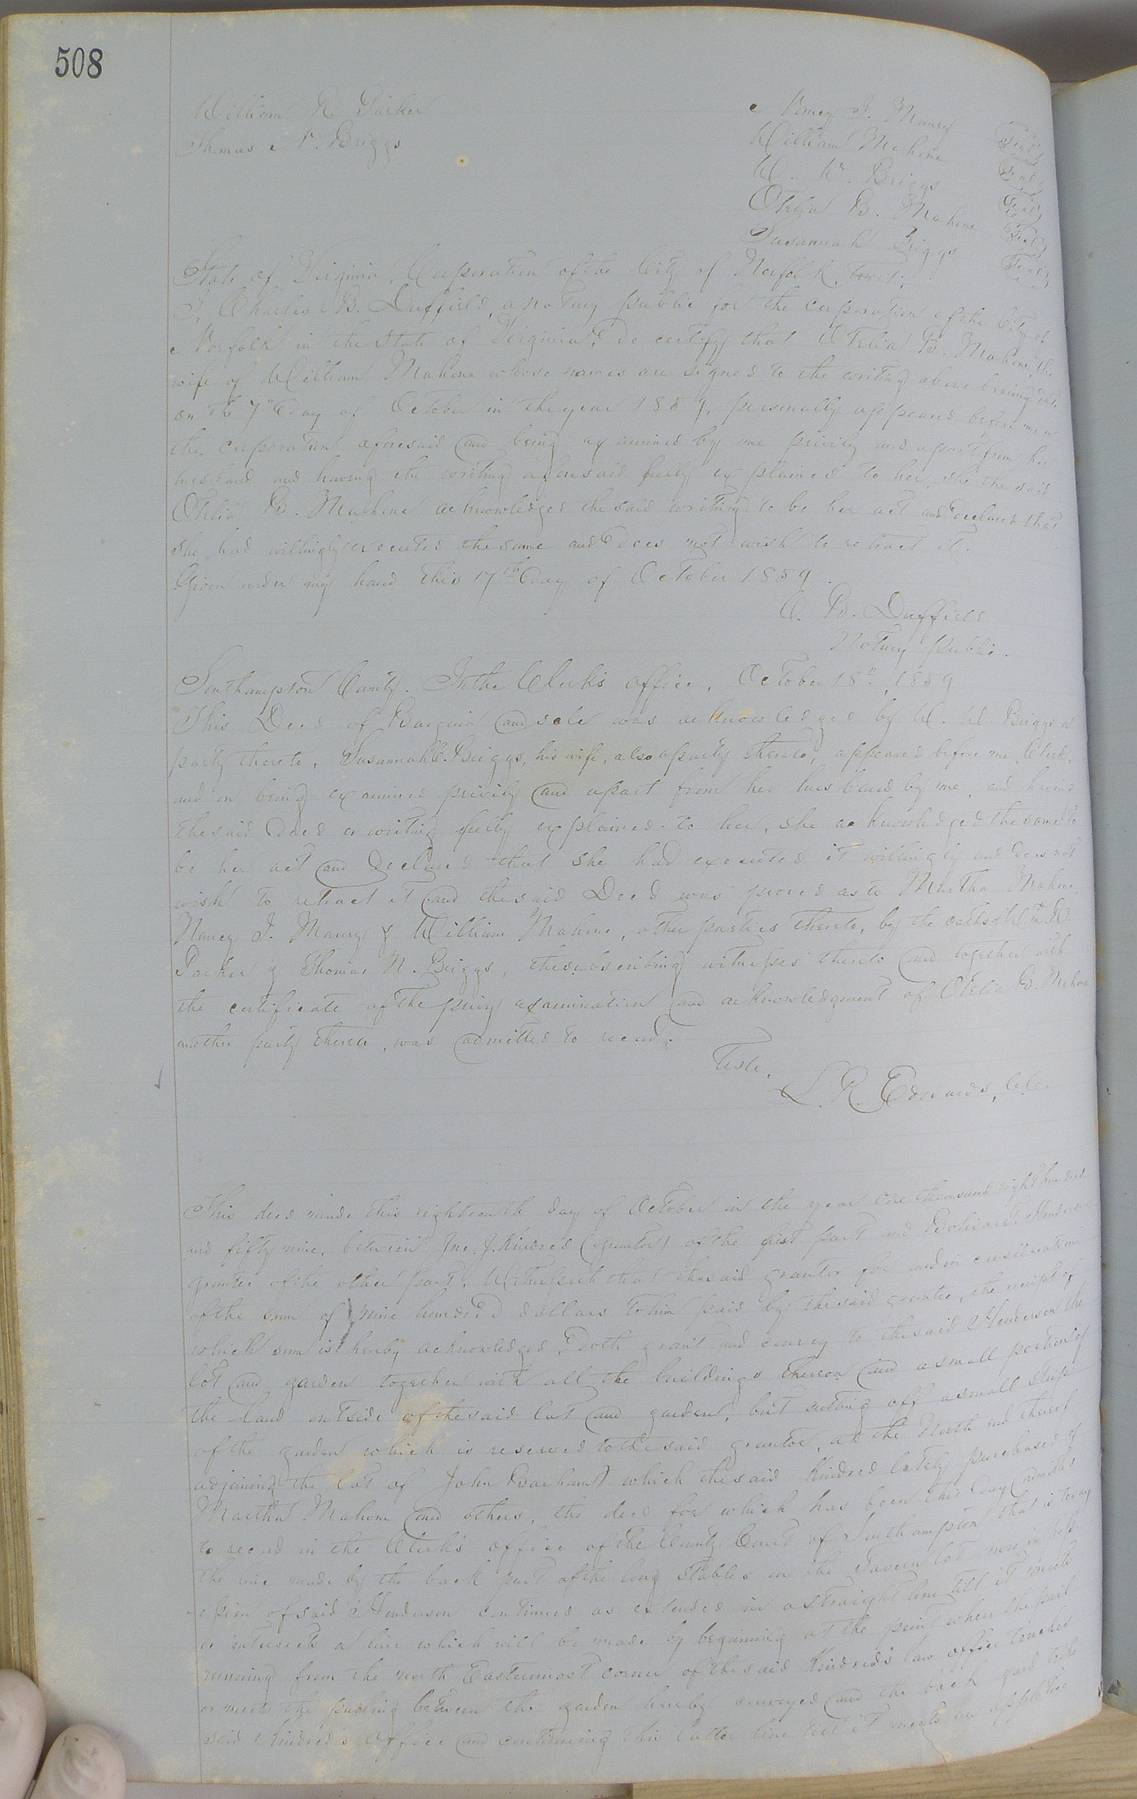 508
William R. Parker
Thomas N. Briggs
Nancy J. Maury Seal
William Mahone Seal
W. W. Briggs Seal
Otelia B. Mahone Seal
Susannah Briggs Seal
State of Virginia, Corporation of the City of Norfolk, towit;
I Charles B. Duffield, a notary public for the corporation of the City of
Norfolk in the State of Virginia, do certify that Otelia B. Mahone, the
wife of William Mahone whose names are signed to the writing above bearing date
on the 7th day of October in the year 1859, personally appeared before me in
the corporation aforesaid and being examined by me privily and apart from her
husband and having the writing aforesaid fully explained to her, she the said
Otelia B. Mahone acknowledged the said writing to be her act and declared that
she had willingly executed the same and does not wish to retract it.
Given under my hand this 17th day of October 1859.
C. B. Duffield
Notary public.
Southampton County. In the Clerk's office, October 18th, 1859
This Deed of Bargain and sale was acknowledged by W. W. Briggs a
party thereto, Susannah C. Briggs, his wife, also a party thereto, appeared before me, Clerk,
and on being examined privily and apart from her husband by me, and having
the said deed or writing fully explained to her, she acknowledged the same to
be her act and declared that she had executed it willingly and does not
wish to retract it and the said Deed was proved as to Martha Mahone,
Nancy J. Maury & William Mahone, other parties thereto, by the oaths of Wm R
Parker & Thomas N. Briggs, the subscribing witnesses thereto and together with
the certificate of the privy examination and acknowledgment of Otelia B. Mahone
another party thereto, was admitted to record.
Teste,
L. R. Edwards, C.C.
This deed made this eighteenth day of October in the year One thousand eight hundred
and fifty nine, between Jno. J. Kindred (grantor) of the first part and
grantee of the other part, Witnesseth that the said grantor for and in consideration
of the sum of nine hundred dollars to him paid by the said grantee, the receipt of
which sum is hereby acknowledged, Doth grant and convey to the said Henderson the
lot and garden together with all the buildings thereon and a small portion of
the land outside of the said lot and garden, but cutting off a small strip
of the garden which is reserved to the said grantor, at the North end thereof
adjoining the lot of John Barham which the said Kindred lately purchased of
Martha Mahone and others, the deed for which has been this day admitted
to record in the Clerk's office of the County Court of Southampton, that is to say
the line made by the back part of the long Stables on the Tavern lot now in
of said Henderson continued as extended in a straight line till it meets
or intersects a line which will be made by beginning at the point where the pail
running from the north Easternmost corner of the said Kindred's law office touches
or meets the pailing between the garden hereby conveyed and the back yard to the
said Kindred's office and continuing this latter line till it meets